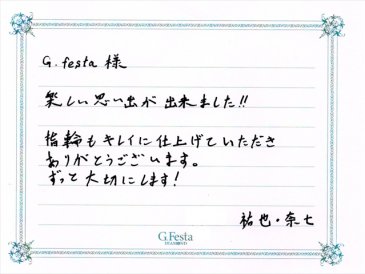 G.festa 様
楽しい思い出が出来ました!!
指輪もキレイに仕上げていただき
ありがとうございます。
ずっと大切にします!
祐也・奈七
G.Festa
DIAMOND